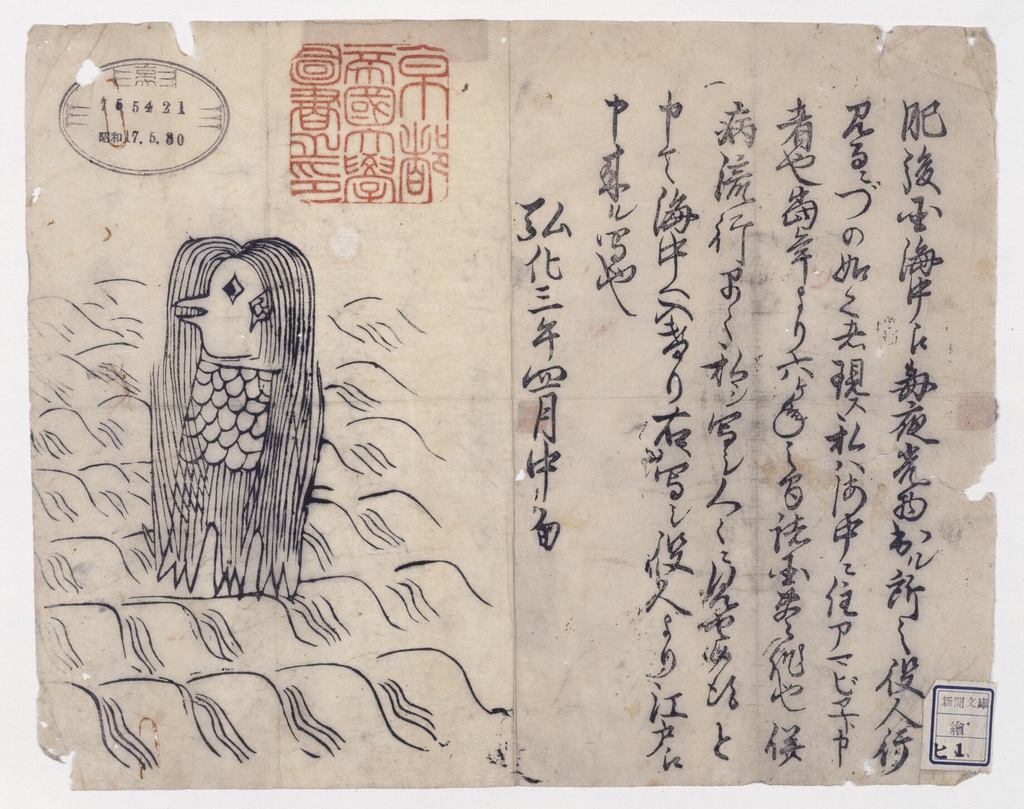 肥後国海中え毎夜光物出ル所之役人行
見るニづの如く者現ス私ハ海中ニ住アマビヱト申
者也當年より六ヶ年之間諸国豊作也併
病流行早々私ヲ写シ人々ニ見セ候得と
申て海中へ入けり右写シ役人より江戸え
申来ル写也
弘化三年四月中旬
京都
帝國大學
圖書之印
765421
昭和17.5.30
新聞文庫
繪
ヒ1